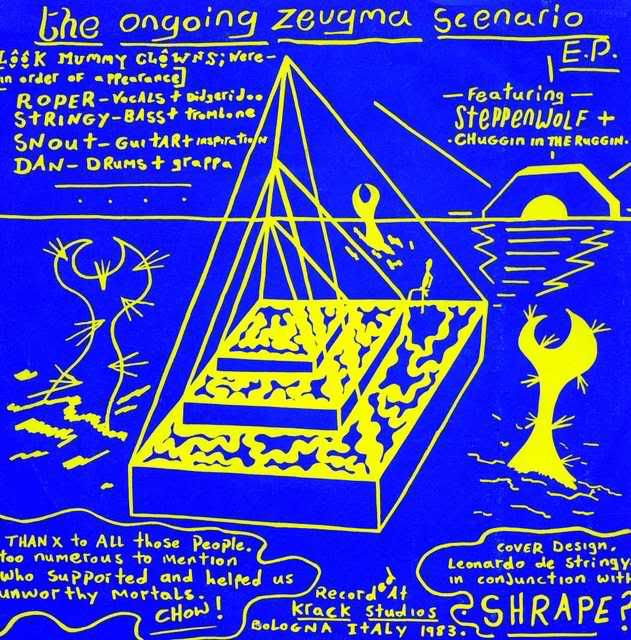 the ongoing zeugma scenario
E.P.
LOOK MUMMY CLOWNS; Were-
in order of appearance]
ROPER-VOCALS + Didgeridoo
STRINGY-BASS + trombone
SNOUT-GUITART + inspiration
DAN-DRUMS + grappa
-Featuring-
STEPPENWOLF +
.CHUGGIN IN THE RUGGIN.
THANX to ALL those People.
too numerous to mention
who supported and helped us
unworthy mortals.
CHOW!
Record'd At
Krack Studios
BOLOGNA ITALY 1983
COVER DESIGN.
Leonardo de Stringy.
in conjunction with
SHRAPE?